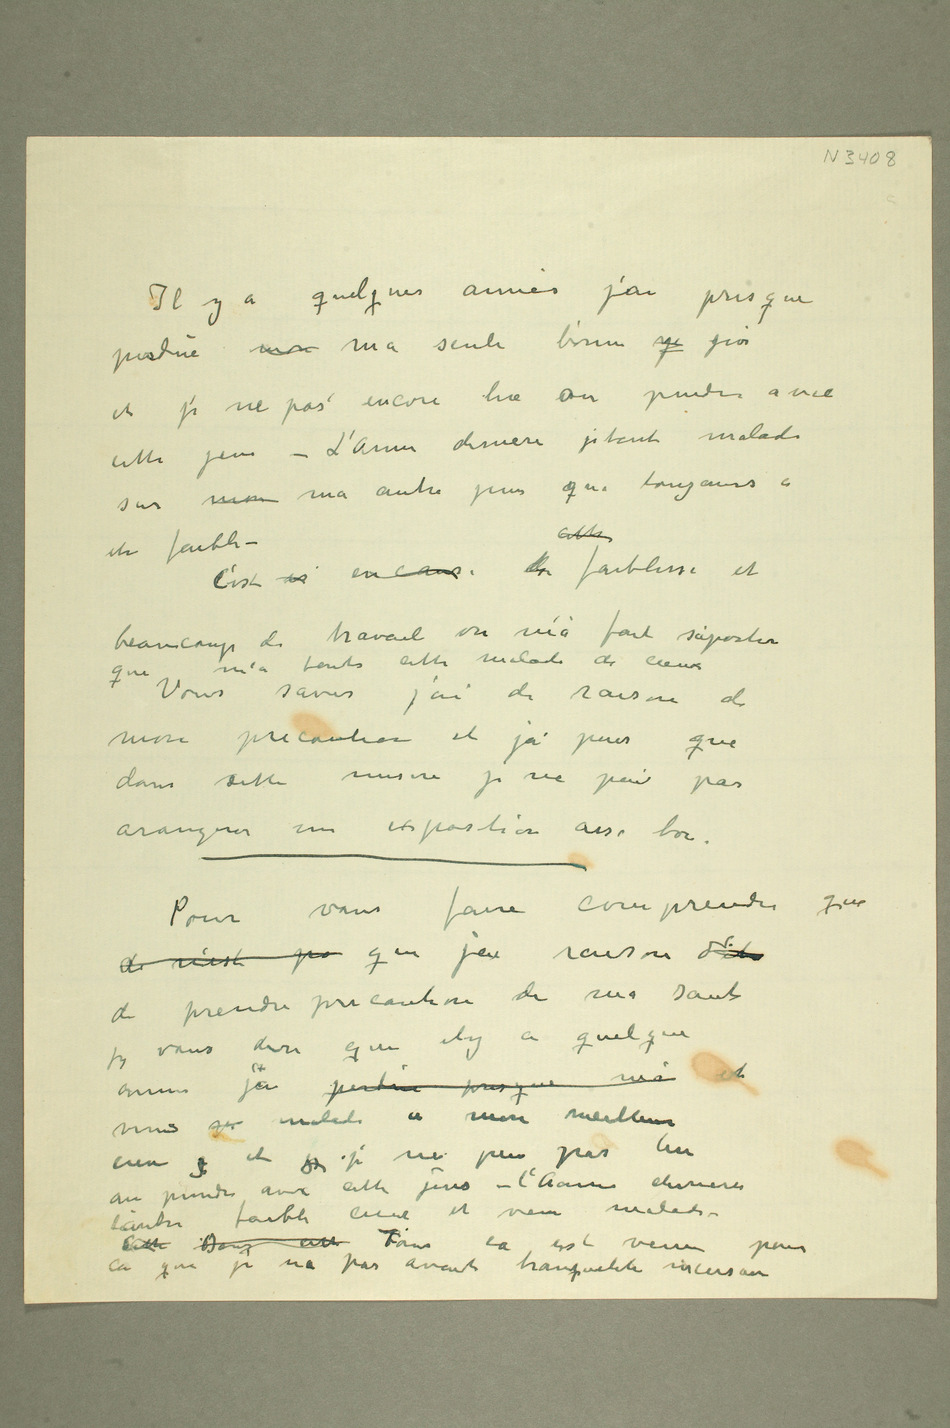 N 3408
Il y a quelques années j'ai presque
perdue mon ma seule bonne ye
et je ne pas encore lire ou pindre avec
cette jeux – L'Anne derniere jetant malade
sur mon ma autre jeux que toujours a
ete faible –
cette
C'est en cause de faiblesse et
beaucoup de travail on m'a fait suporter
que m'a tante cette malade de
Vous saves j'ai de raison de
mon precaution et j'a peur que
dans cette misere je ne pai pas
aranger un exposition ase bon.
Pour vous faire comprendre que
de n'est pa que jai raison d'
de prendre precaution de ma sante
je vous dire que ily a quelque
annes ja perdue presque ma et
malade a mon meilleur
et je ne peu pas lire
ou pindre avec cette jeus – l'Anne dernieres
l'autre faible et malade –
Cette Dans cette Tous ca est venu pour
ca que je na pas avant tranquilete